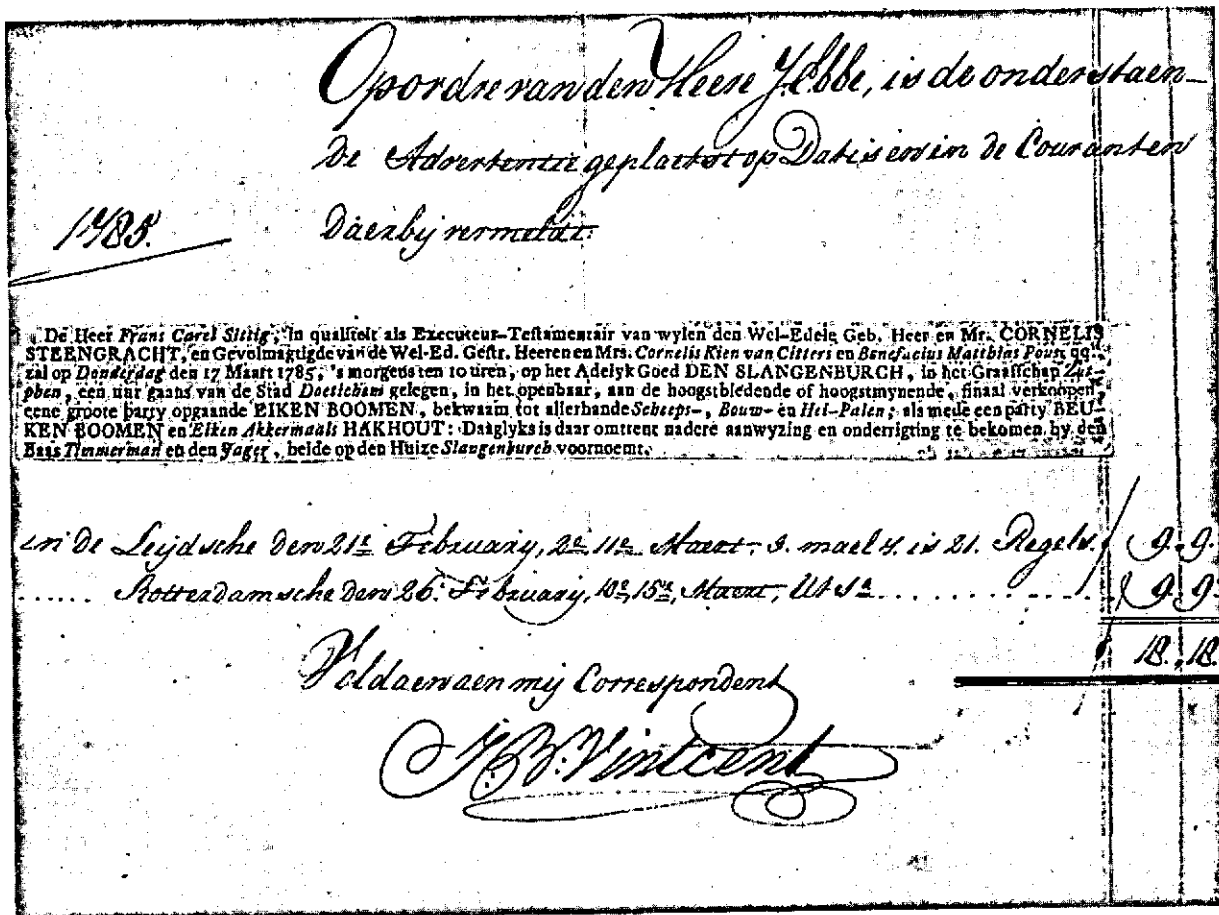 Op ordre van den Heere J. Ebbe, is de onderstaen-
de Advertentie geplaetst op Datis en in de Couranten
1785.
Daerbij vermeldt.
De Heer Frans Carel Sittig, in qualiteit als Executeur-Testamentair van wylen den Wel-Edele Geb. Heer en Mr. CORNELIS
STEENGRACHT, en Gevolmagtigde van de Wel-Ed. Gestr. Heeren en Mrs. Cornelis Kien van Citters en Bonefacius Matthias Pous, qq.
zal op Donderdag den 17 Maart 1785, 's morgens ten 10 uren, op het Adelyk Goed DEN SLANGENBURCH, in het Graafschap Zut-
phen, een uur gaans van de Stad Doetichem gelegen, in het openbaar, aan de hoogstbiedende of hoogstmynende, finaal verkoopen,
eene groote party opgaande EIKEN BOOMEN, bekwaam tot allerhande Scheeps-, Bouw- en Hei-Palen; als mede een party BEU-
KEN BOOMEN en Eiken Akkermaals HAKHOUT: Daaglyks is daar omtrent nadere aanwyzing en onderrigting te bekomen by den
Baas Timmerman en den Jager, beide op den Huize Slangenburch voornoemt.
in de Leijdsche den 21e February, 2e 11e Maert, 3. mael 4. is 21. Regels 9.9.
...... Rotterdamsche den 26. February, 10e, 15e, Maert, Ut Sa ............ 9.9.
18.18.
Voldaen aen mij Correspondent
J: B: Vintcent